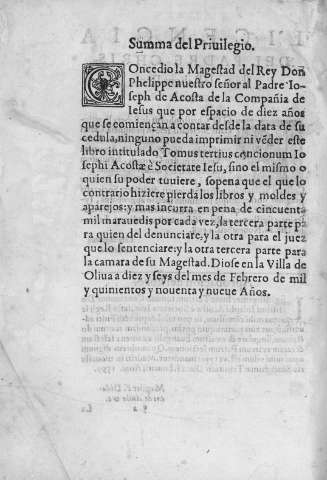 Summa del Priuilegio.
COncedio la Magestad del Rey Don
Phelippe nuestro señor al Padre Io-
seph de Acosta de la Compañia de
Iesus que por espacio de diez años
que se comiençan a contar desde la data de su
cedula, ninguno pueda imprimir ni vẽder este
libro intitulado Tomus tertius concionum Io
sephi Acostæ è Societate Iesu, sino el mismo o
quien su poder tuuiere, so pena que el que lo
contrario hiziere pierda los libros y moldes y
aparejos: y mas incurra en pena de cincuenta
mil marauedis por cada vez, la tercera parte pa
ra quien del denunciare: y la otra para el juez
que lo sentenciare: y la otra tercera parte para
la camara de su Magestad. Diose en la Villa de
Oliua a diez y seys del mes de Febrero de mil
y quinientos y nouenta y nueue Años.